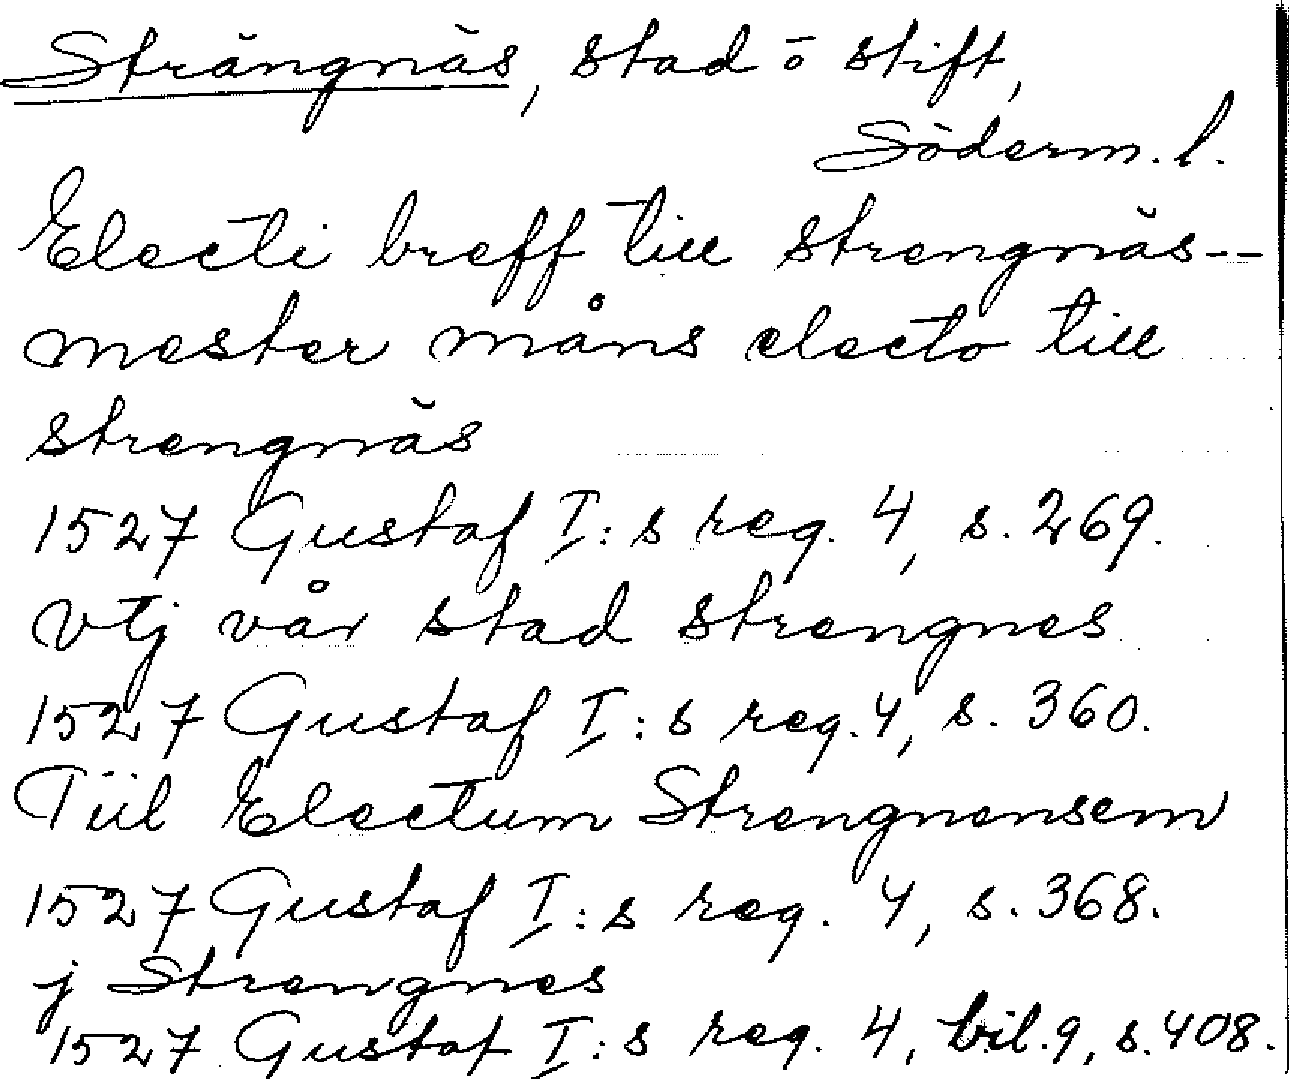 Strängnäs, stad o stift,
Söderm. l.
Electi breff till strengnäs--
mester måns electo till
strengnäs
1527 Gustaf I:s reg. 4, s. 269.
vtj vår stad strengnes
1527 Gustaf I:s reg. 4, s. 360.
Tiil Electum Strengnensem
1527 Gustaf I:s reg. 4, s. 368.
j Strengnes
1527 Gustaf I:s reg. 4, bil. 9, s. 408.